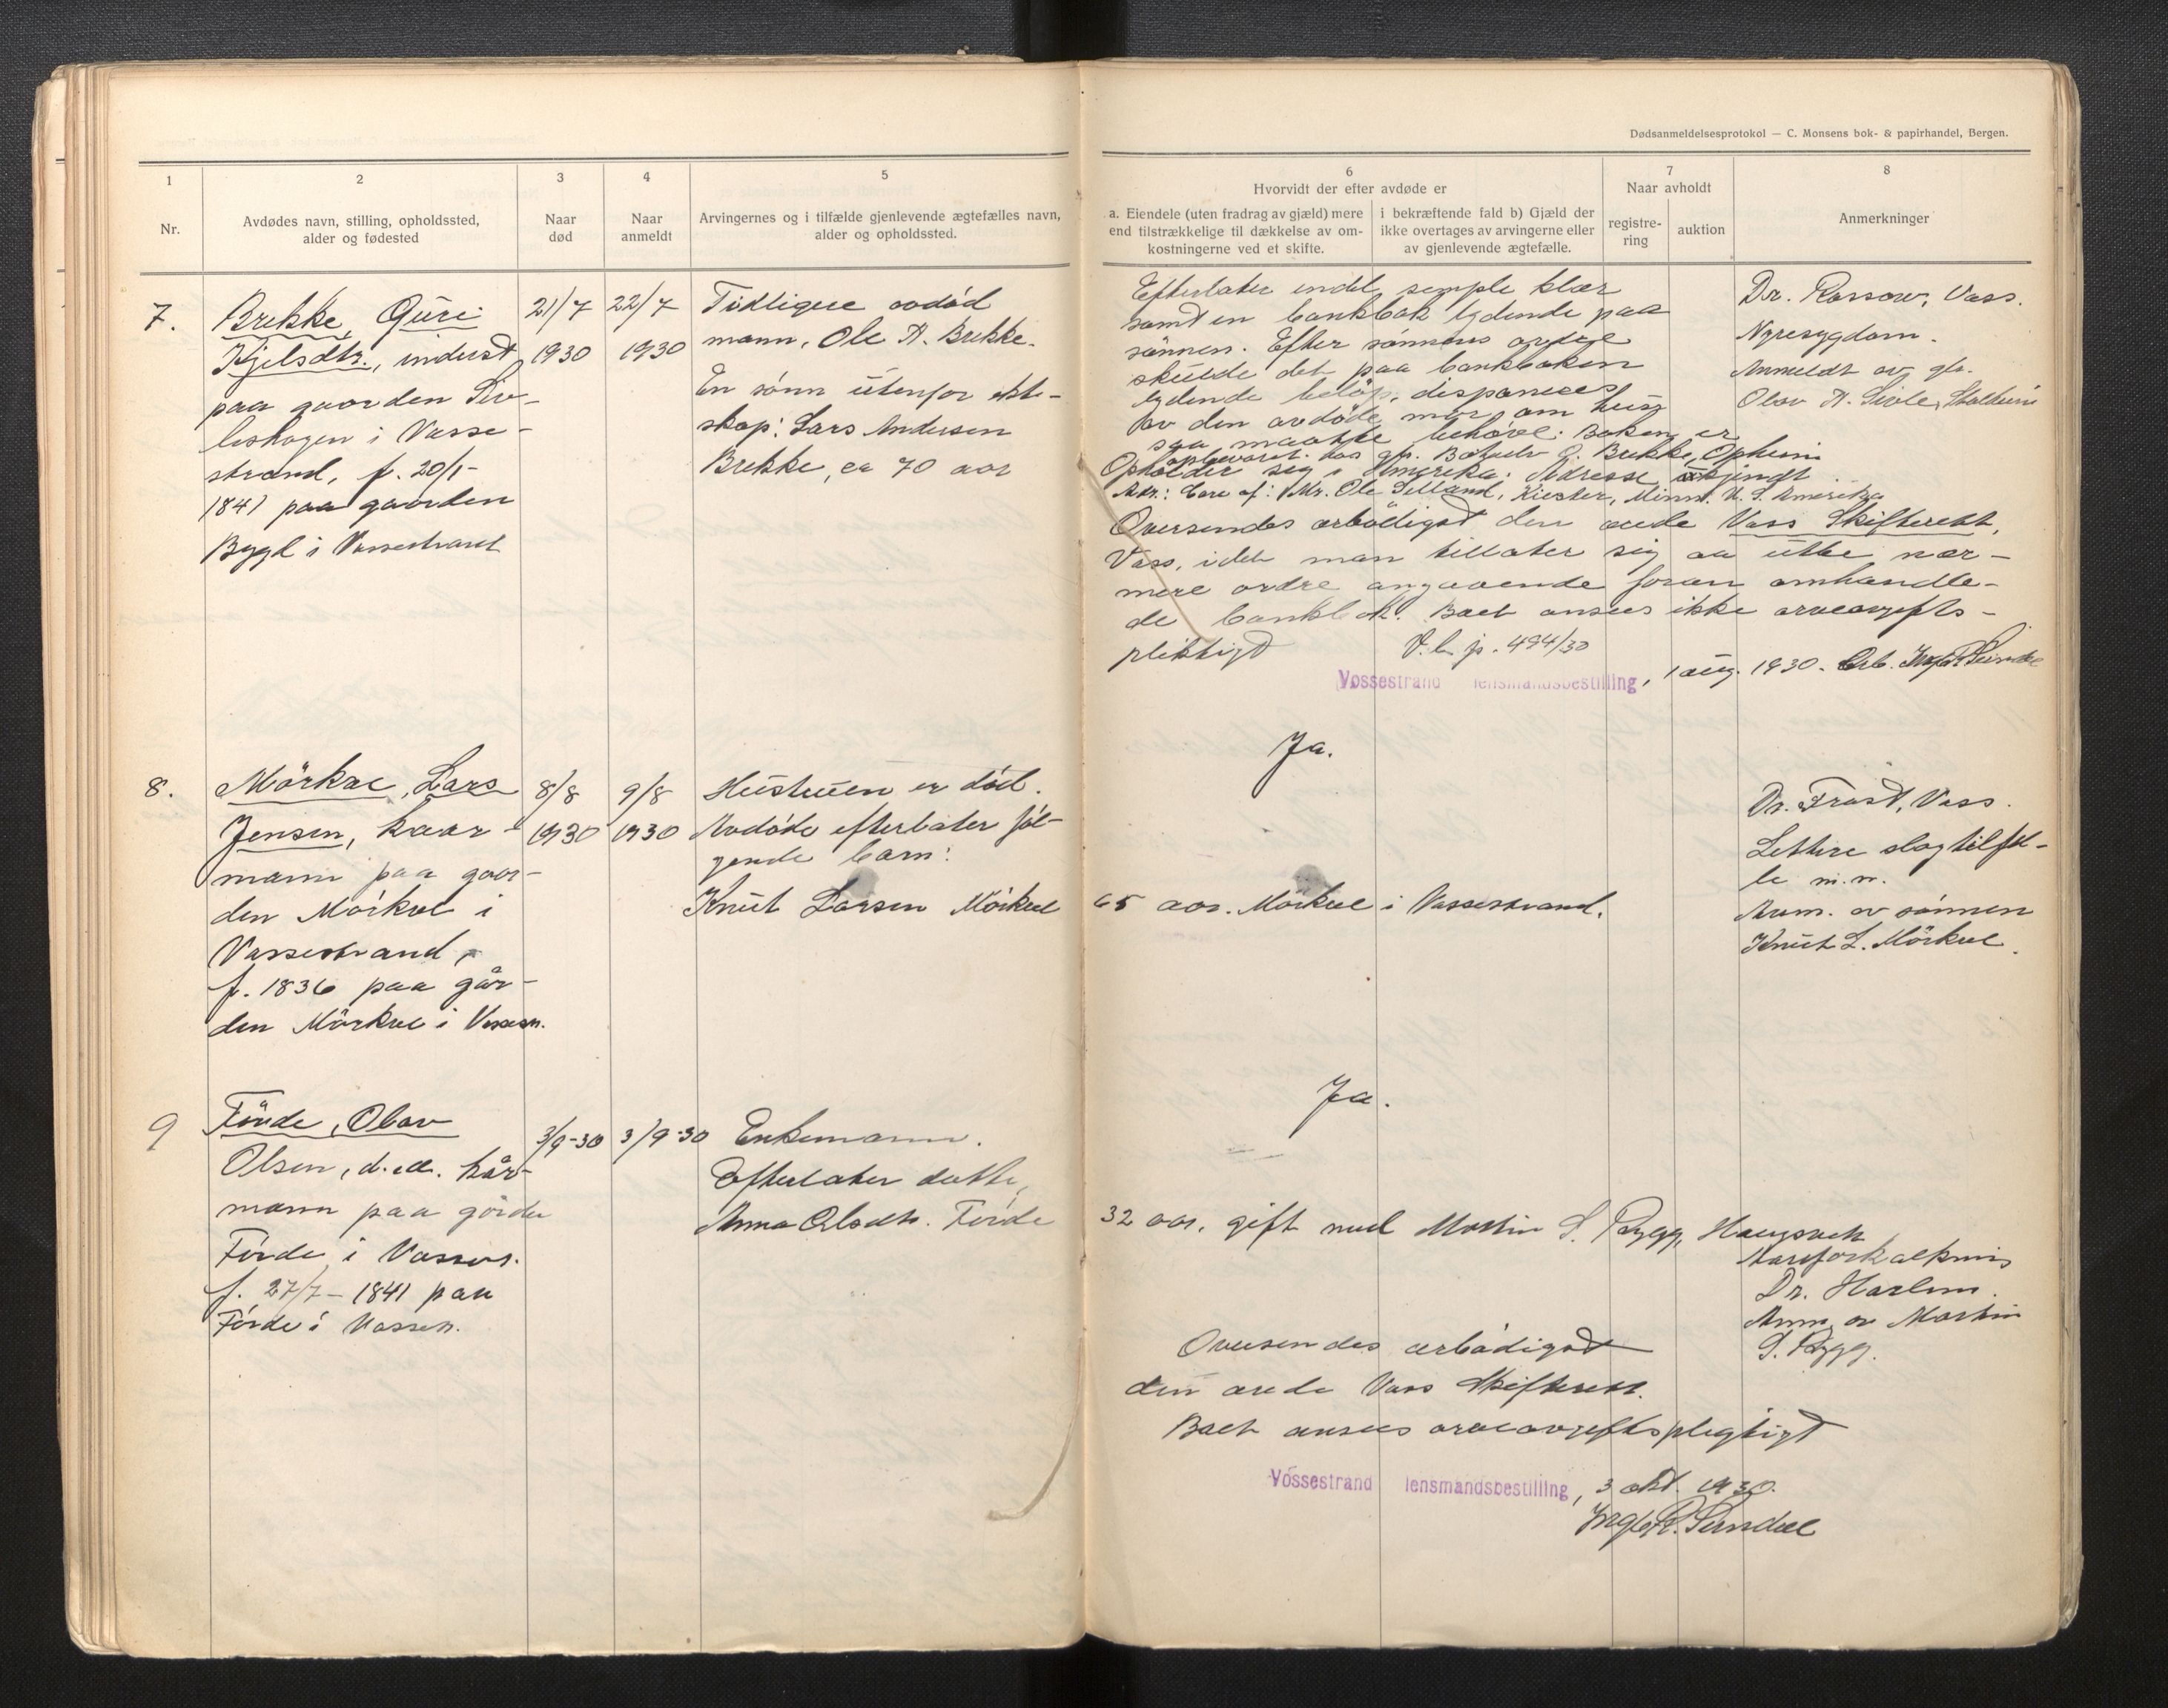 Dødsanmeldelsesprotokol — C. Monsens bok- & papirhandel, Bergen.
1
Nr.
2
Avdødes navn, stilling, opholdssted,
alder og fødested
3
Naar
død
4
Naar
anmeldt
5
Arvingernes og i tilfælde gjenlevende ægtefælles navn,
alder og opholdssted.
6
Hvorvidt der efter avdøde er
a. Eiendele (uten fradrag av gjæld) mere
end tilstrækkelige til dækkelse av om-
kostningerne ved et skifte.
i bekræftende fald b) Gjæld der
ikke overtages av arvingerne eller
av gjenlevende ægtefælle.
7
Naar avholdt
registre-
ring
auktion
8
Anmerkninger
7.
Brekke, Guri
Kjelsdtr., inderst
paa gaarden Siv-
leshagen i Vosse-
strand, f. 20/1-
1841 paa gaarden
Bygd i Vossestrand
21/7
1930
22/7
1930
Tidligere avdød
mann, Ole A. Brekke.
En sönn utenfor ekte-
skap: Lars Andersen
Brekke, ca 70 aar
Efterlater endel simple klær
samt en bankbok lydende paa
sönnen. Efter sönnens
skulde det paa bankboken
lydende belöp, disponeres
av den avdöde mor, om hun
saa maatte behöve. Boken er
opbevaret hos gbr. O. Brekke, Opheim
Opholder sig i Amerika. Adresse ukjendt
Adr.: Care of: Mr. Ole Selland, Kiester, Minn. U. S. Amerika
Oversendes ærbödigst den ærede Voss Skifterett,
Voss, idet man tillater sig aa utbe nær-
mere ordre angaaende foran omhandle-
de bankbok. Boet ansees ikke arveavgifts-
pliktigt
V. l. j. 494/30
Vossestrand lensmandsbestilling, 1 aug. 1930. Ærb. Ingb. R. Sundve
Dr. Rossow, Voss.
Nyresygdom.
Anmeldt av gbr.
Olav A. Sivle, Stalheim
8.
Mörkve, Lars
Jensen, kaar-
mann paa gaar-
den Mörkve i
Vossestrand,
f. 1836 paa går-
den Mörkve i Vossestr.
8/8
1930
9/8
1930
Hustruen er död.
Avdöde efterlater föl-
gende barn:
Knut Larsen Mörkve
Ja.
65 aar. Mörkve i Vossestrand.
Dr. Frost, Voss.
Lettere slagtilfel-
le m.m.
Anm. av sönnen
Knut L. Mörkve.
9
Förde, Olav
Olsen, d.e. kår-
mann paa gården
Förde i Vossestr.
f. 27/7 - 1841 paa
Förde i Vossestr.
3/9-30
3/9-30
Enkemann.
Efterlater datter,
Anna Olsdtr. Förde
Ja.
32 aar, gift med Martin S. Rygg, Haugsvik
Aareforkalkning
Dr. Harlem.
Anm. av Martin
S. Rygg.
Oversendes ærbödigst
den ærede Voss Skifterett.
Boet ansees arveavgiftspligtigt
Vossestrand lensmandsbestilling, 3 okt. 1930.
Ingb. R. Sundve